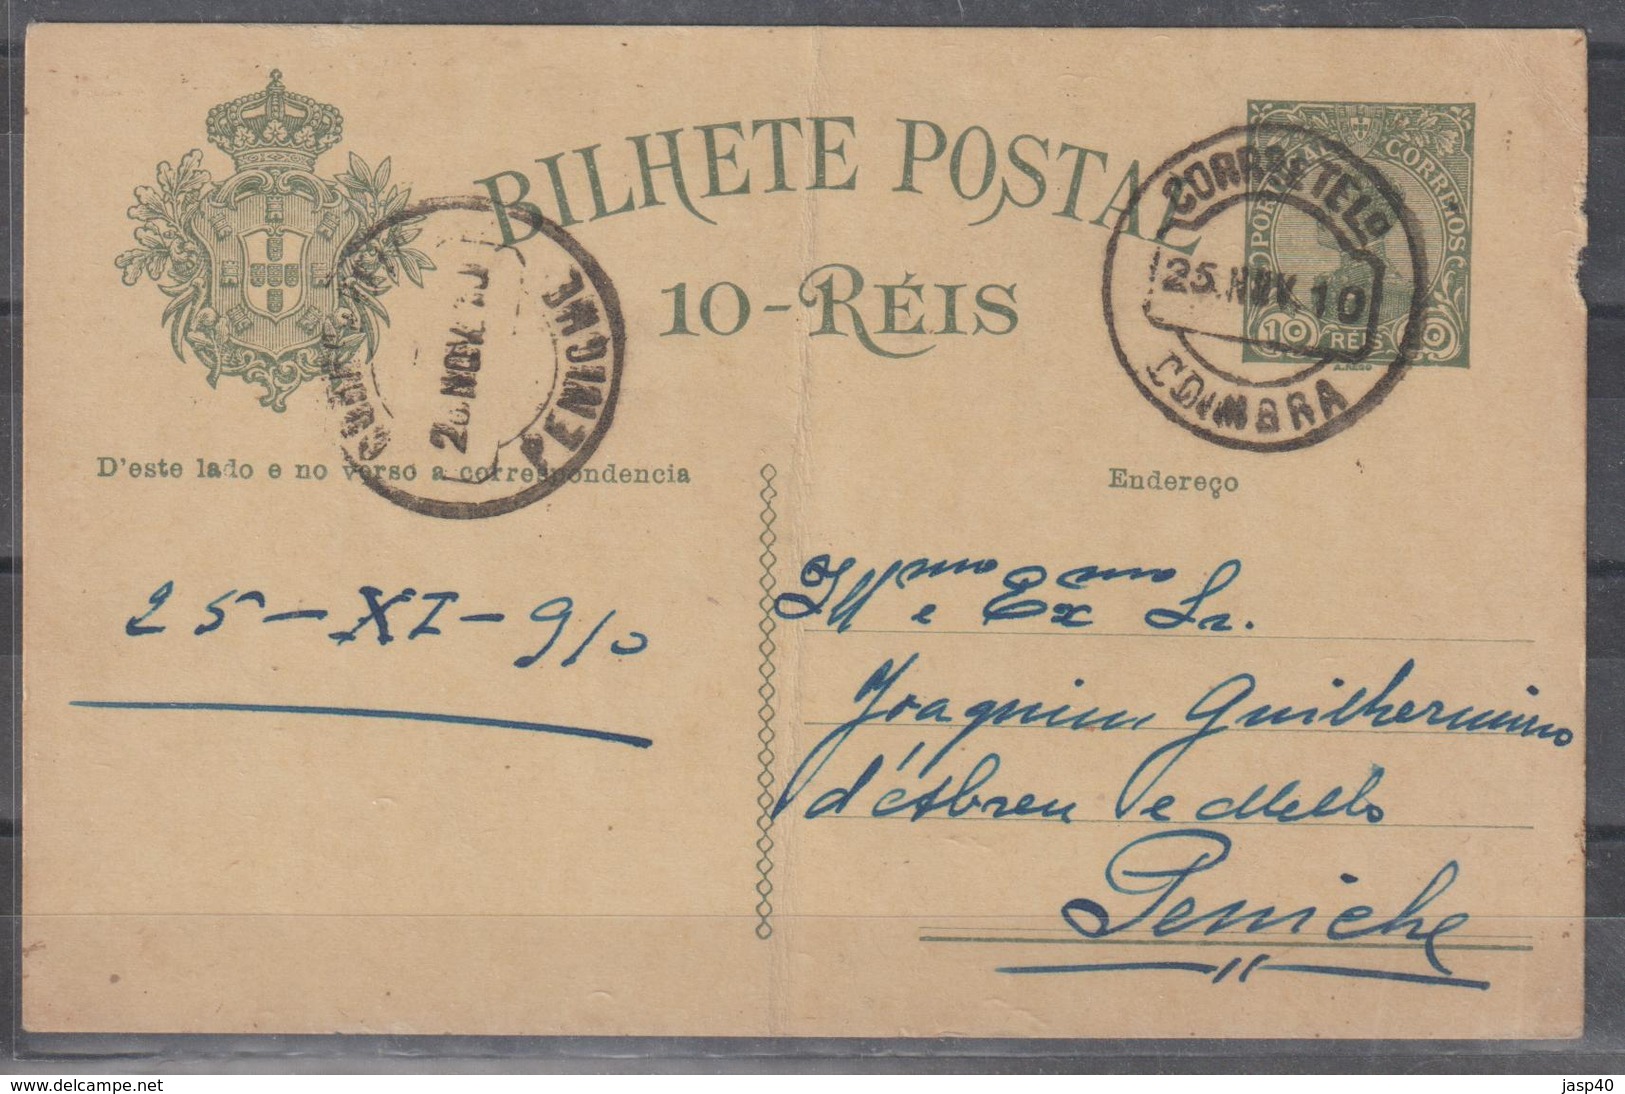 BILHETE POSTAL
10-RÉIS
PORTUGAL CORREIOS
10 RÉIS 10
A.REGO
CORRO E TELO
25.NOV.10
COIMBRA
NOV
PENICHE
D'este lado e no verso a correspondencia
Endereço
25-XI-910
Illmo e Exmo Sr.
Joaquim Guilhermino
d'Abreu e Mello
Peniche
www.delcampe.net
jasp40